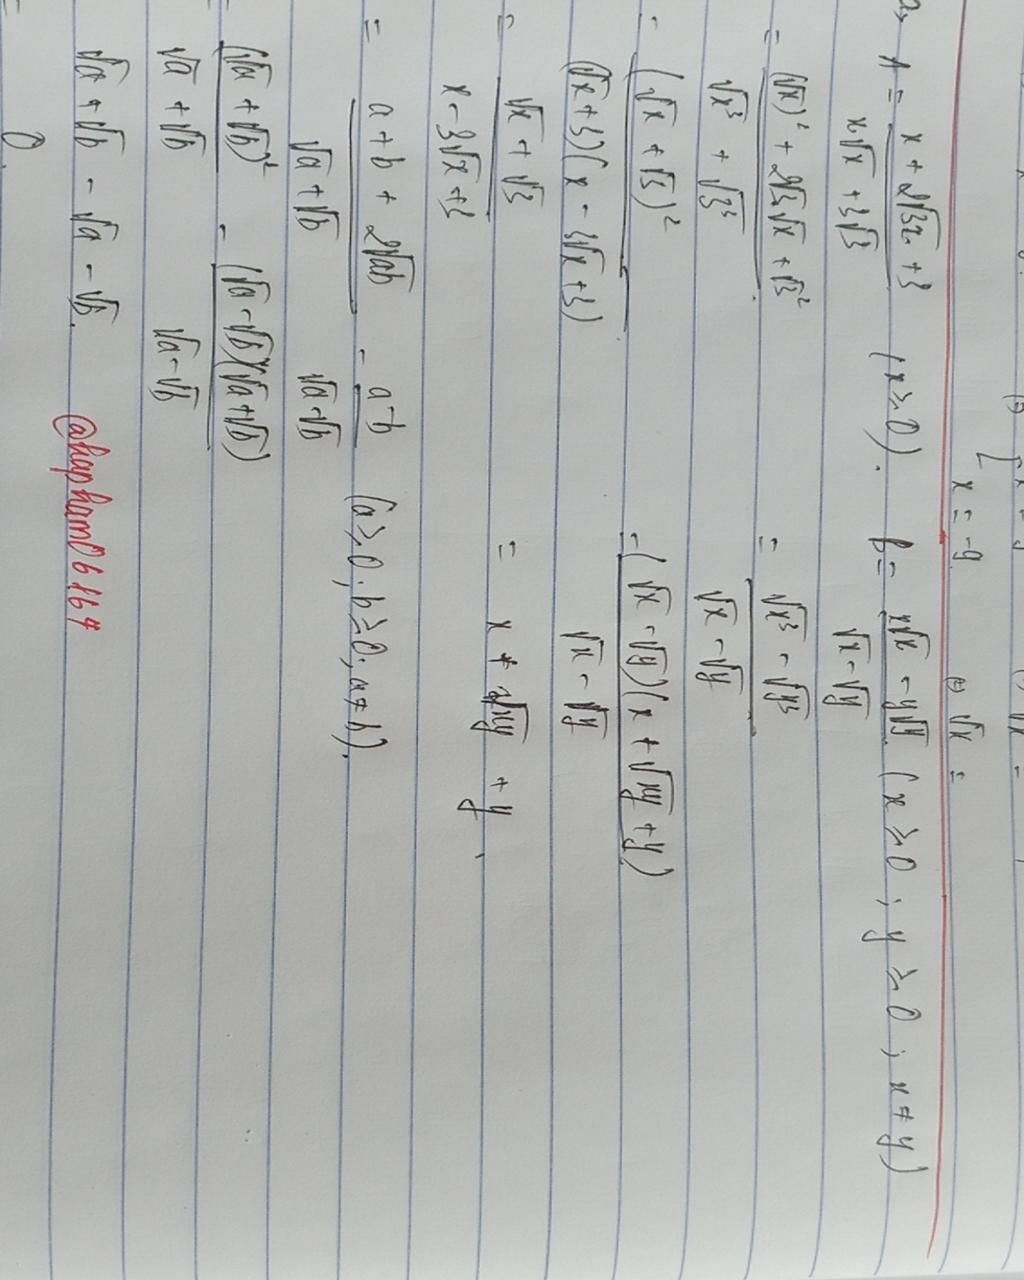 x = -9
(+) √x =
a, A = x + 2√3x + 3 / x√x + 3√3 (x ≥ 0).
B = x√x - y√y / √x - √y (x ≥ 0 ; y ≥ 0 ; x ≠ y)
= (√x)² + 2√3√x + √3² / √x³ + √3³
= √x³ - √y³ / √x - √y
= (√x + √3)² / (√x + 3)(x - 3√x + 3)
= (√x - √y)(x + √xy + y) / √x - √y
= √x + √3 / x - 3√x + 3
= x + √xy + y
= a + b + 2√ab / √a + √b - a - b / √a - √b (a ≥ 0, b ≥ 0, a ≠ b).
= (√a + √b)² / √a + √b - (√a - √b)(√a + √b) / √a - √b
= √a + √b - √a - √b
= 0.
@hapham06164